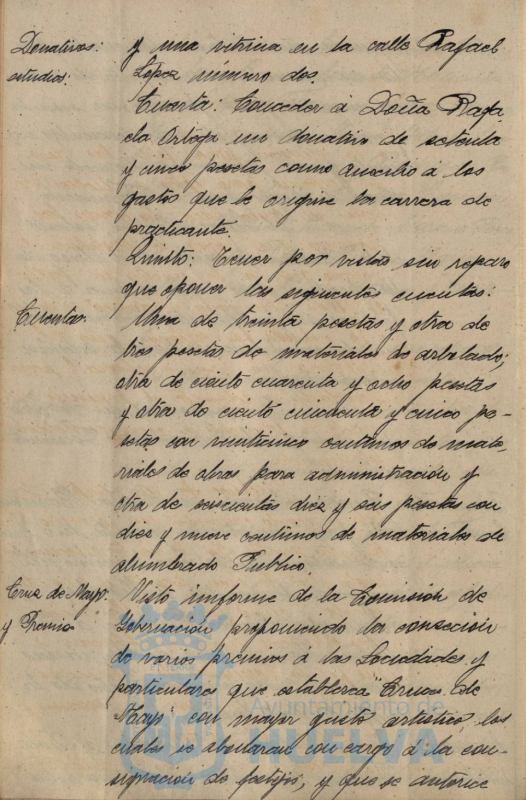 Donativos:
estudios:
y una vitrina en la calle Rafael
López número dos.
Cuarta: Conceder á Doña Rafa
ela Ortega un donativo de setenta
y cinco pesetas como auxilio á los
gastos que le origine la carrera de
practicante.
Quinto: Tener por vistas sin reparo
que oponer las siguientes cuentas:
Cuentas.
Una de treinta pesetas y otra de
tres pesetas de materiales de arbolado;
otra de ciento cuarenta y ocho pesetas
y otra de ciento cincuenta y cinco pe-
setas con veinticinco centimos de mate-
riales de obras para administración y
otra de seiscientas diez y seis pesetas con
diez y nueve centimos de materiales de
alumbrado Publico.
Cruz de Mayo:
y Premio
Visto informe de la Comisión de
Gobernación proponiendo la conseción
de varios premios á las Sociedades y
particulares que establezca "Cruces de
Mayo" con mayor gusto artistico, los
cuales se abonaran con cargo á la con-
signación de festejos, y que se autorice
Ayuntamiento de
HUELVA